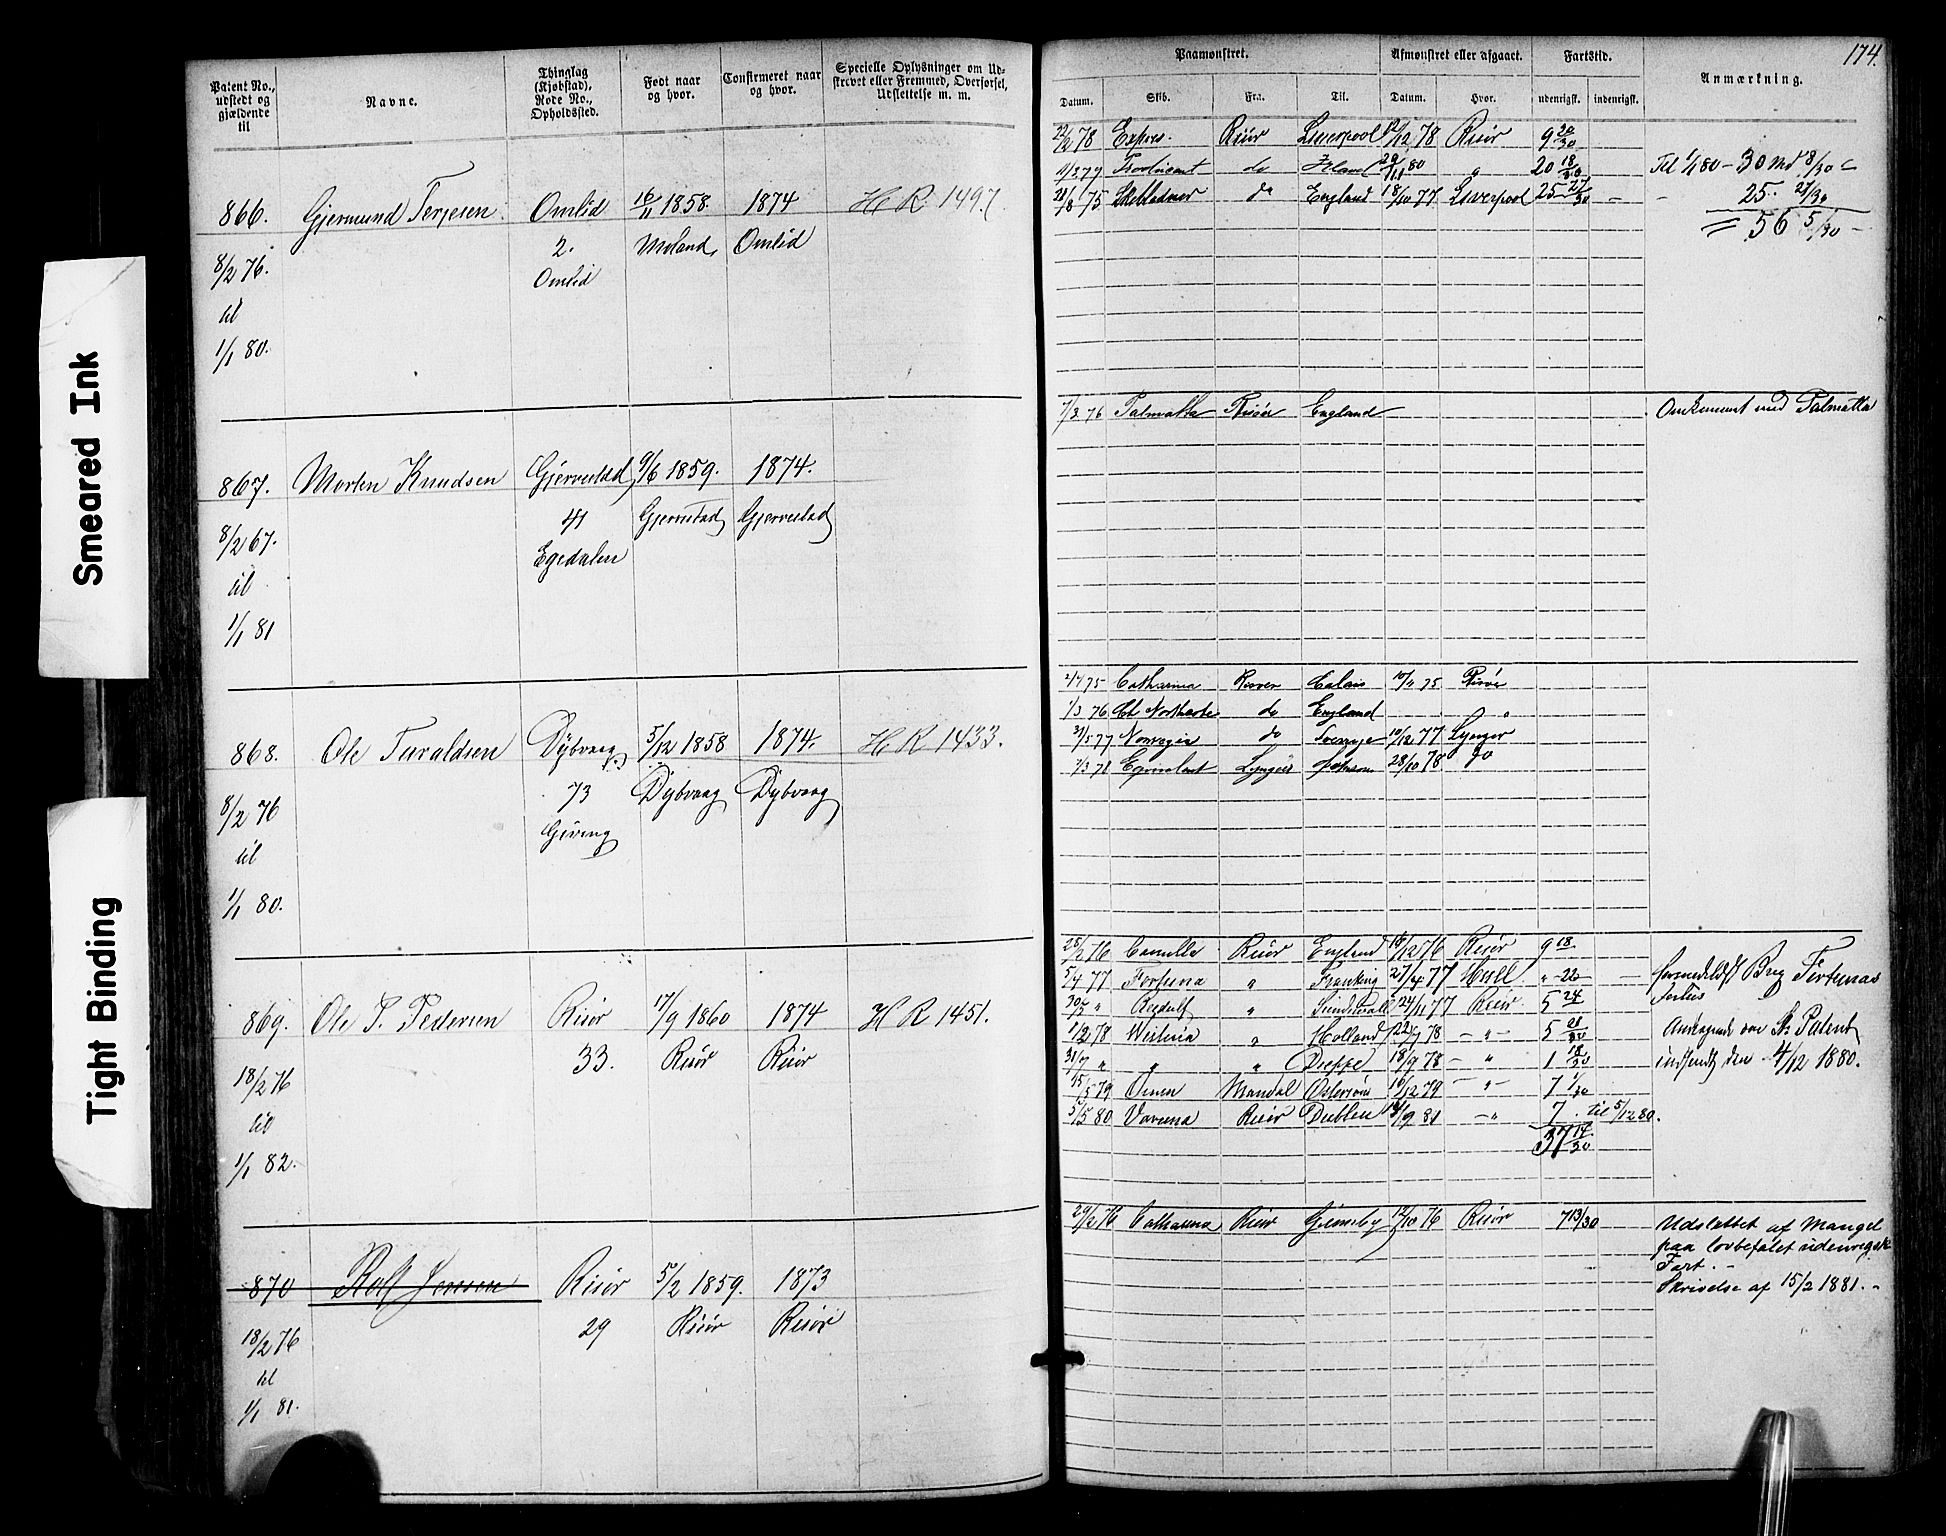 174.
Smeared Ink
Tight Binding
Patent No., udstedt og gjældende til
Navne.
Thinglag (Kjøbstad), Rode No., Opholdssted.
Født naar og hvor.
Confirmeret naar og hvor.
Specielle Oplysninger om Udskrevet eller Fremmed, Overførsel, Udslettelse m. m.
Paamønstret.
Afmønstret eller afgaaet.
Fartstid.
Anmærkning.
Datum.
Skib.
Fra.
Til.
Datum.
Hvor.
udenrigsk.
indenrigsk.
866. Gjermund Terjesen Omlid 16/11 1858. 1874 H R 1497.
8/2 76. 2. Moland, Omlid
til Omlid
1/1 80.
22/2 78 Expres. Risør Liverpool 12/12 78 Risør 9 20/30
1/3 79 do Irland 29/11 80 " 20 18/30 Til 1/1 80 - 30 Md 8/30
28/8 75 do England 18/10 77 Liverpool 25 27/30 - - 25. 27/30
= 56 5/30 -
867. Morten Knudsen Gjerrestad 9/6 1859. 1874.
8/2 67. 41 Gjerrestad Gjerrestad
til Egedalen
1/1 81
7/3 76 Palmatta Risør England Omkommet med Palmatta
868. Ole Taraldsen Dybvaag 5/12 1858 1874. H R 1433.
8/2 76 73 Dybvaag Dybvaag
til Gjeving
1/1 80.
2/7 75 Catharina Calais 10/11 75 Risør
1/3 76 do England "
31/5 77 Norvegia do Sverige 10/12 77 Lyngør
7/3 78 Equivalent Lyngør 28/10 78 do
869. Ole P. Pedersen Risør 17/9 1860 1874 H R 1451.
18/2 76 33. Risør Risør
til
1/1 82.
25/2 76 Camilla Risør England 16/12 76 Risør 9 18
5/4 77 Fortuna " 27/4 77 Hull " -22- - formedelst Brig Fortunas
Forlis
30/5 " Rudolf " Sundsvall 24/11 77 Risør 5 24
1/2 78 " Holland 22/7 78 - " - 5 21/30 Andragende om St. Patent
31/7 " " " Dieppe 18/9 78 - " 1 18/30 indsendt den 4/12 1880.
15/5 79 Ørnen Mandal Østersøen 16/12 79 - " - 7 1/30
5/5 80 Varuna Risør Dublin 14/9 81 - " 7. til 5/12 80.
37 14/30
870 Rolf Jensen Risør 5/2 1859. 1873
18/2 76 29 Risør Risør
til
1/1 81.
29/2 76 Catharina Risør Grimsby 14/10 76 Risør 7 13/30 Udslettet af Mangel
paa lovbefalet udenrigsk
Fart. -
Skrivelse af 15/2 1881. -